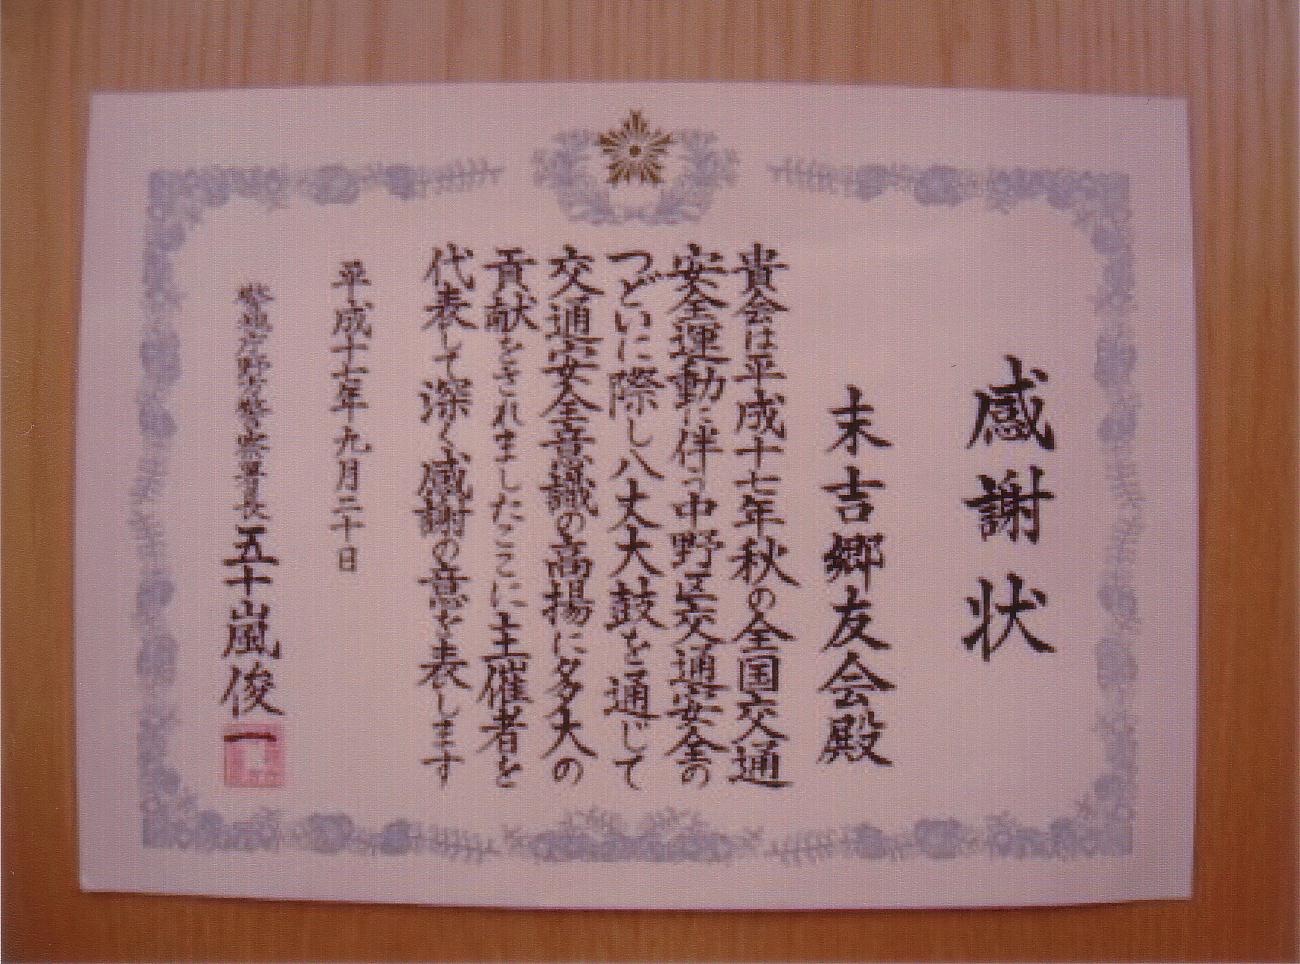 感謝状
末吉郷友会殿
貴会は平成十七年秋の全国交通
安全運動に伴う中野区交通安全の
つどいに際し八丈太鼓を通じて
交通安全意識の高揚に多大の
貢献をされましたここに主催者を
代表して深く感謝の意を表します
平成十七年九月二十日
警視庁野方警察署長 五十嵐俊一